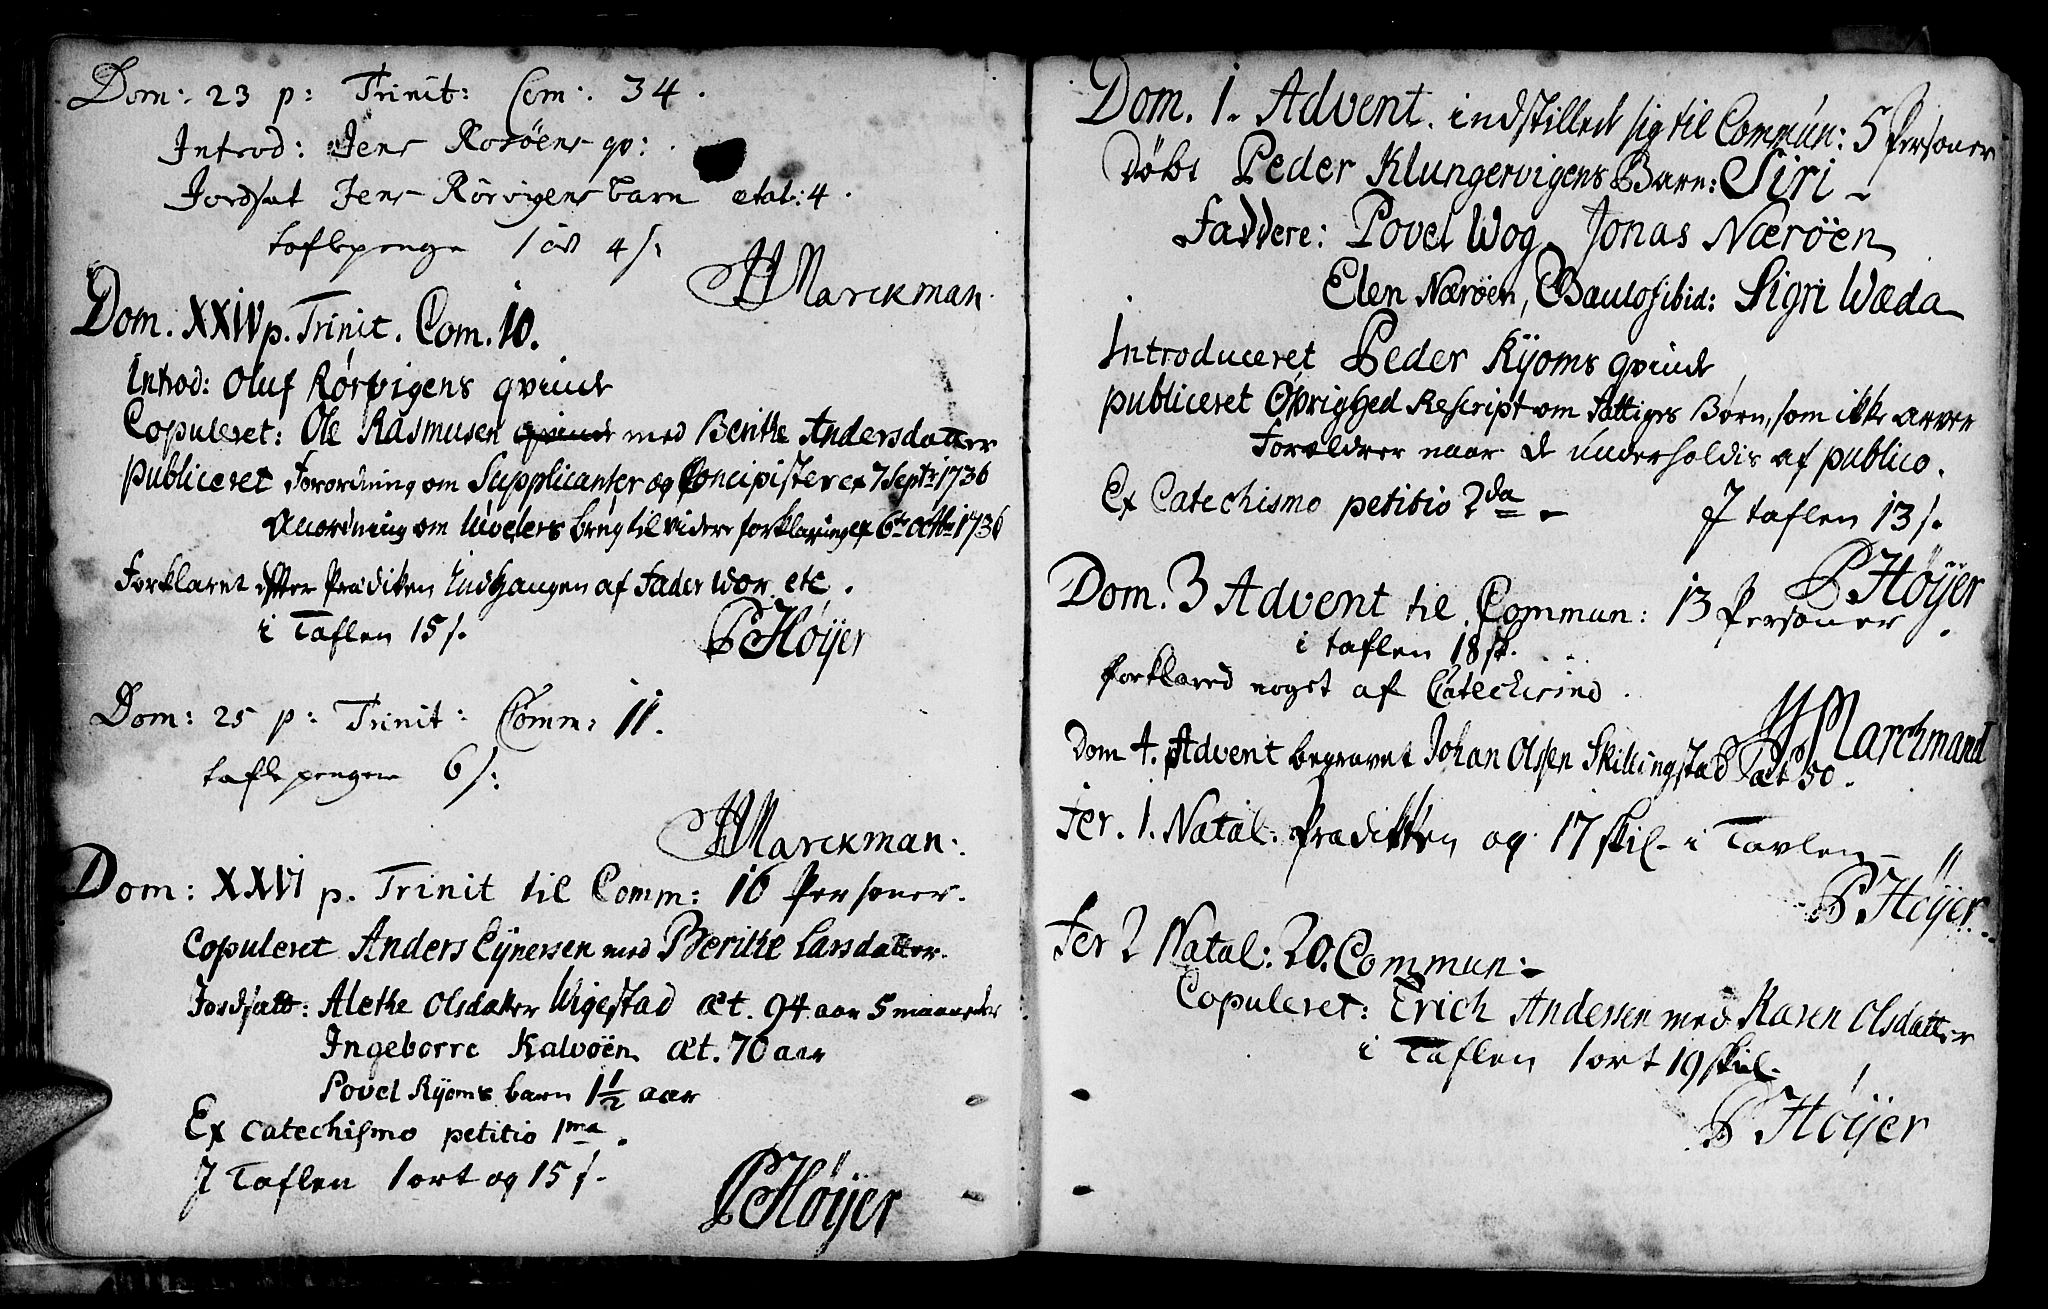 Dom: 23 p: Trinit: Com: 34.
Introd: Jens Rosöens qv:
Jordsat Jens Rörvigens barn ætat: 4.
taflepenge 1 ort 4 s:
HMarckman.
Dom. XXIV p. Trinit. Com. 10.
Introd: Oluf Rörvigens qvinde
Copuleret: Ole Rasmusen qvinde med Berithe Andersdatter
publiceret Forordning om Supplicanter og Concipister ex 7 Sept: 1736
Anordning om brug til videre forklaring ex 6te octbr 1736
Forklaret efter Prædiken Indgangen af Fader wor etc.
i Taflen 15 s.
P Höijer
Dom: 25 p: Trinit: Comm: 11.
taflepengene 6 s:
HMarckman.
Dom: XXVI p. Trinit til Comm: 16 Personer.
Copuleret Anders Eijnersen med Berithe Larsdatter.
Jordsatt: Alethe Olsdatter Wigestad æt. 94 aar 5 maaneder
Ingeborre Kalvöen æt. 70 aar
Povel Rijoms barn 1 1/2 aar
Ex catechismo petitio 1ma.
J Taflen 1 ort og 15 s.
P Höijer
Dom. 1. Advent. indstilled sig til Commun: 5 Personer
Döbt Peder Klungervigens Barn: Siri
Faddere: Povel Wog, Jonas Næröen
Elen Næröen, ibid: Sigri Wæda
Introduceret Peder Rijoms qvinde
publiceret Öfrighed Rescript om Fattiges Börn, som ikke arver
Forældrer naar de underholdis af publico.
Ex Catechismo petitio 2da
J taflen 13 s.
P Höijer
Dom. 3 Advent til Commun: 13 Personer.
i taflen 18 sk.
forklared noget af Catechismo.
HMarckmand
Dom 4. Advent begravet Johan Olssen Skillingstad æt 50.
Fer. 1. Natal. Prædikken og 17 skil. i Tavlen
P Höijer.
Fer 2 Natal: 20. Commun:
Copuleret: Erich Anderssen med Karen Olsdatter
i Taflen 1 ort 19 skil.
P Höijer